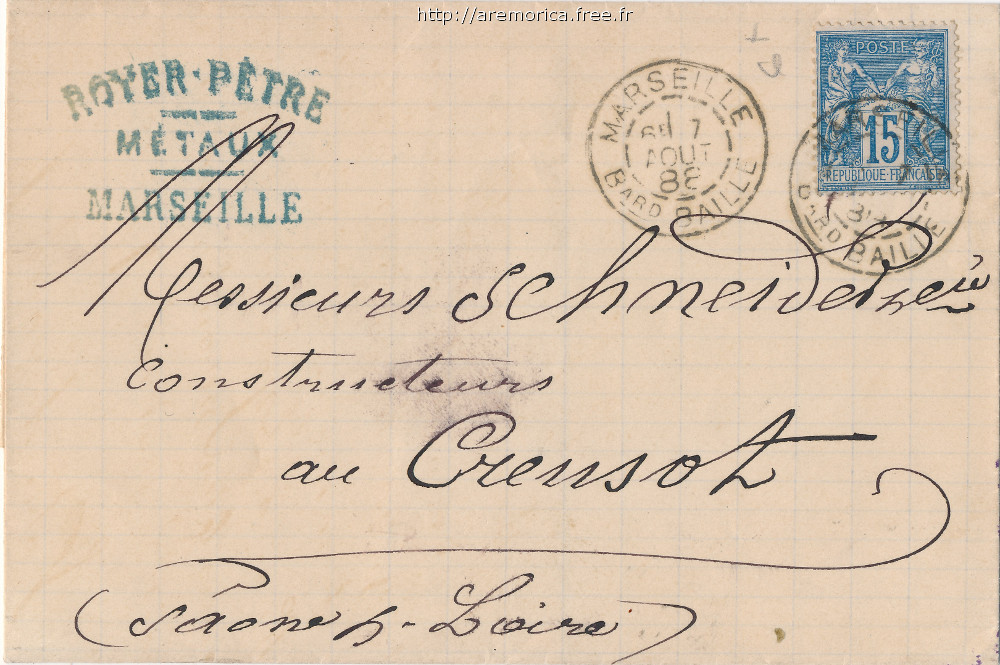 http://aremorica.free.fr
ROYER-PÊTRE
MÉTAUX
MARSEILLE
MARSEILLE
7
AOUT
88
BARD BAILLE
POSTE
15
REPUBLIQUE FRANÇAISE
BARD BAILLE
Messieurs Schneider & Cie
Constructeurs
au Creusot
(Saône & Loire)